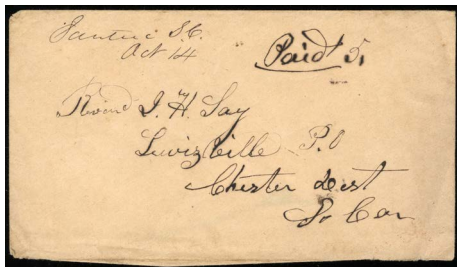 Santuc S.C.
Oct 14
Paid 5
Revnd J. H. Say
Lewisville P.O
Chester Dist
So Car